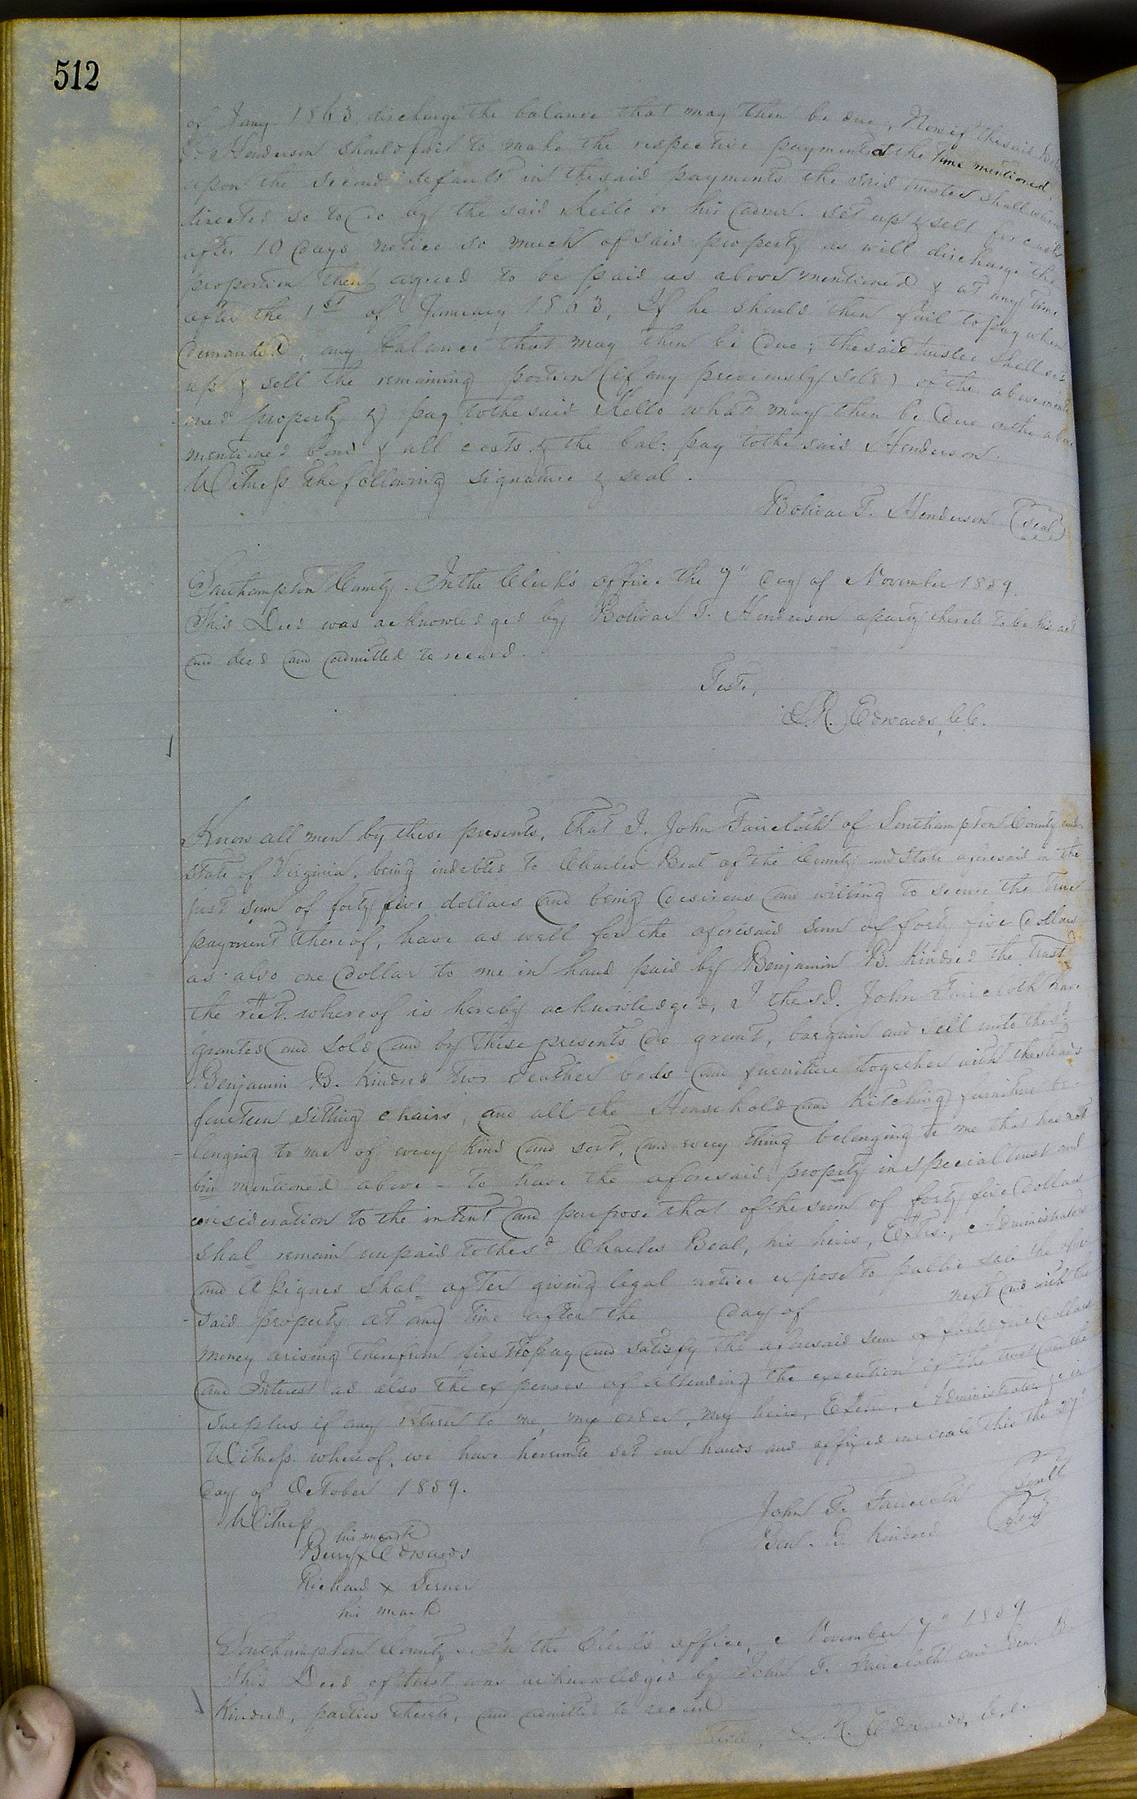 512
of Jany 1863 discharge the balance that may then be due, Now if the said
Henderson should fail to make the respective payments at the time mentioned
upon the second default in the said payments the said trustee shall when
directed so to do by the said Kello or his admr. set up & sell for cash
after 10 days notice so much of said property as will discharge the
proportion then agreed to be paid as above mentioned & at any time
after the 1st of January 1863, If he should then fail to pay when
demanded, any balance that may then be due; the said trustee shall set
up & sell the remaining portion (if any previously sold) of the above menti
oned property & pay to the said Kello what may then be due on the above
mentioned bond & all costs & the bal: pay to the said Henderson.
Witness the following signature & seal.
Bolivar T. Henderson (Seal)
Southampton County. In the Clerk's office the 7" day of November 1859.
This Deed was acknowledged by Bolivar T. Henderson a party thereto to be his act
and deed and admitted to record.
Teste,
L. R. Edwards, C.C.
Know all men by these presents, that I, John Faircloth of Southampton County and
State of Virginia, being indebted to Charles Beal of the County and State aforesaid in the
just sum of forty five dollars and being desirous and willing to secure the true
payment thereof, have as well for the aforesaid sum of forty five dollars
as also one dollar to me in hand paid by Benjamin B. Kindred the Trust
the rect. whereof is hereby acknowledged, I the sd. John Faircloth have
granted and sold and by these presents do grant, bargain and sell unto the sd
Benjamin B. Kindred two feather beds and furniture together with the steads
fourteen sitting chairs, and all the Household and Kitching furniture be-
-longing to me of every kind and sort, and every thing belonging to me that has not
bin mentioned above - to have the aforesaid property in special trust and
consideration to the intent and purpose that of the sum of forty five dollars
shal remain unpaid to the sd Charles Beal, his heirs, Extrs., Administrators
and Assignes shal after giving legal notice expose to public sale the afore
-said property at any time after the day of next and with the
money arising therefrom first to pay and satisfy the aforesaid sum of forty five dollars
and Interest as also the expenses of attending the execution of the trust and the
surplus if any return to me my order, my heirs, Extrs, Administrators &c in
Witness whereof, we have hereunto set our hands and affixed our seals this the 27"
day of October 1859.
John T. Faircloth Seal
Witness Ben. B. Kindred Seal
his mark
Berry x Edwards
Richard x Turner
his mark
Southampton County. In the Clerk's office, November 7" 1859
This Deed of trust was acknowledged by John T. Faircloth and Ben. B.
Kindred, parties thereto, and admitted to record
Teste, L. R. Edwards, C.C.